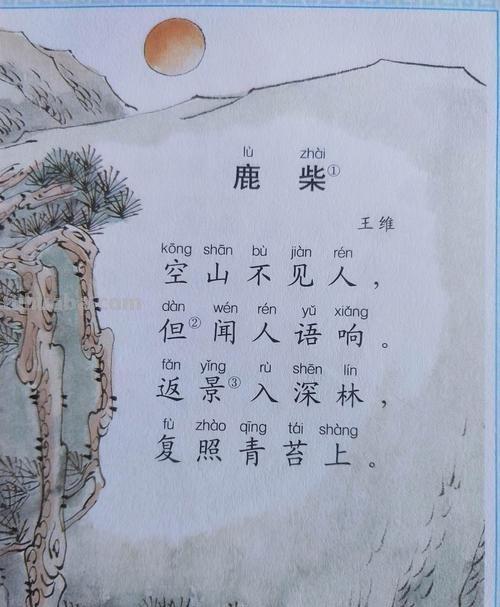 lù zhài
鹿柴①
王维
kōng shān bù jiàn rén
空山不见人，
dàn wén rén yǔ xiǎng
但②闻人语响。
fǎn yǐng rù shēn lín
返景③入深林，
fù zhào qīng tái shàng
复照青苔上。